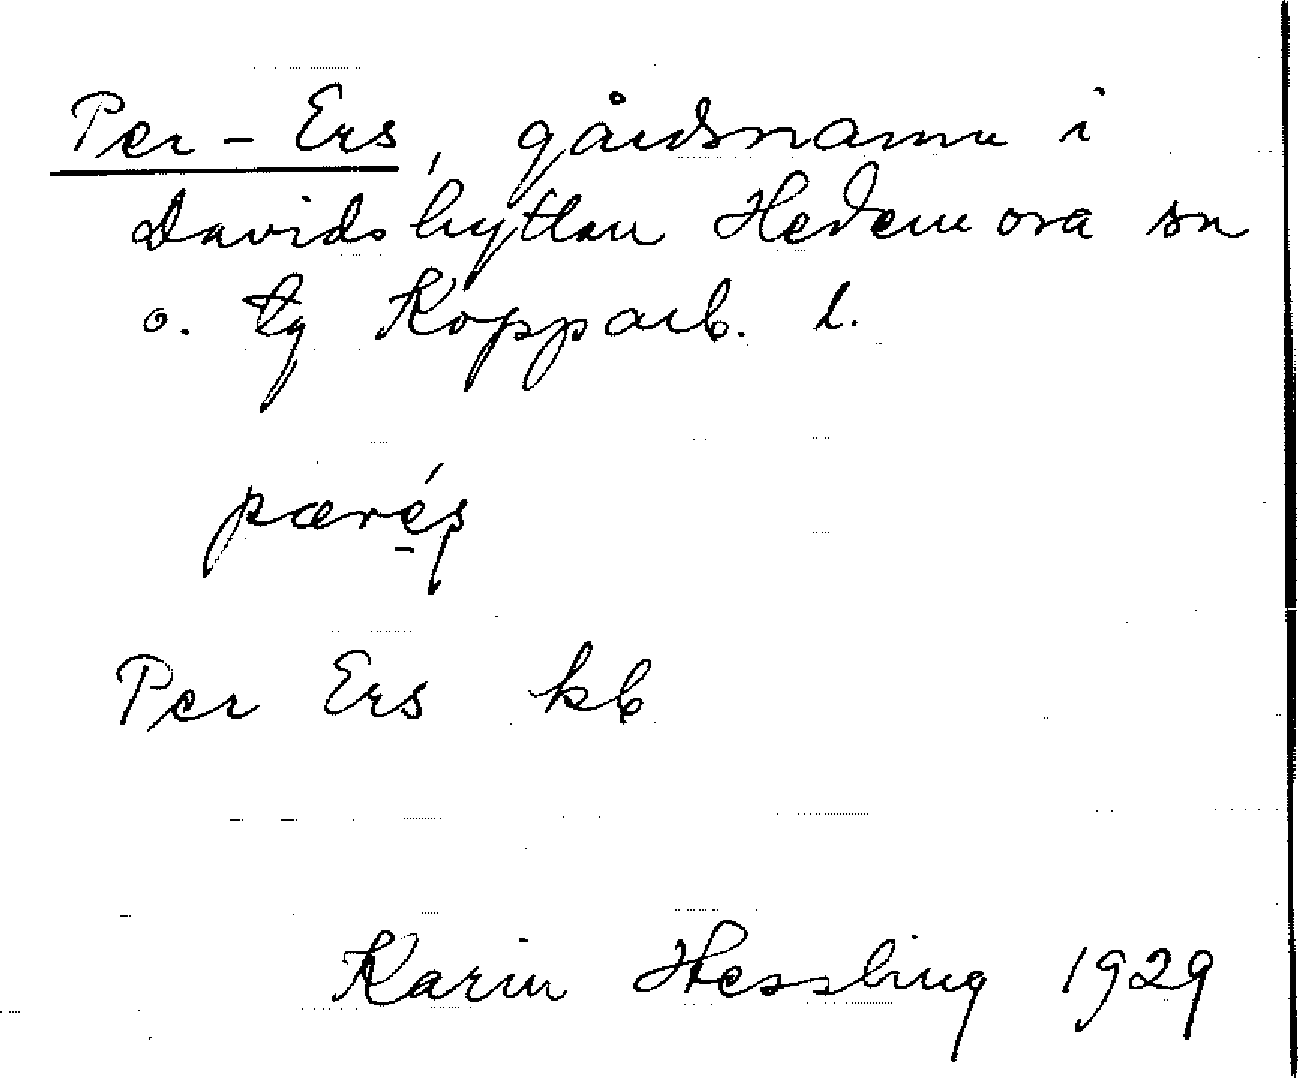 Per-Ers, gårdsnamn i
Davidshyttan Hedemora sn
o. tg Kopparb. l.
pærés
Per Ers kb
Karin Hessling 1929